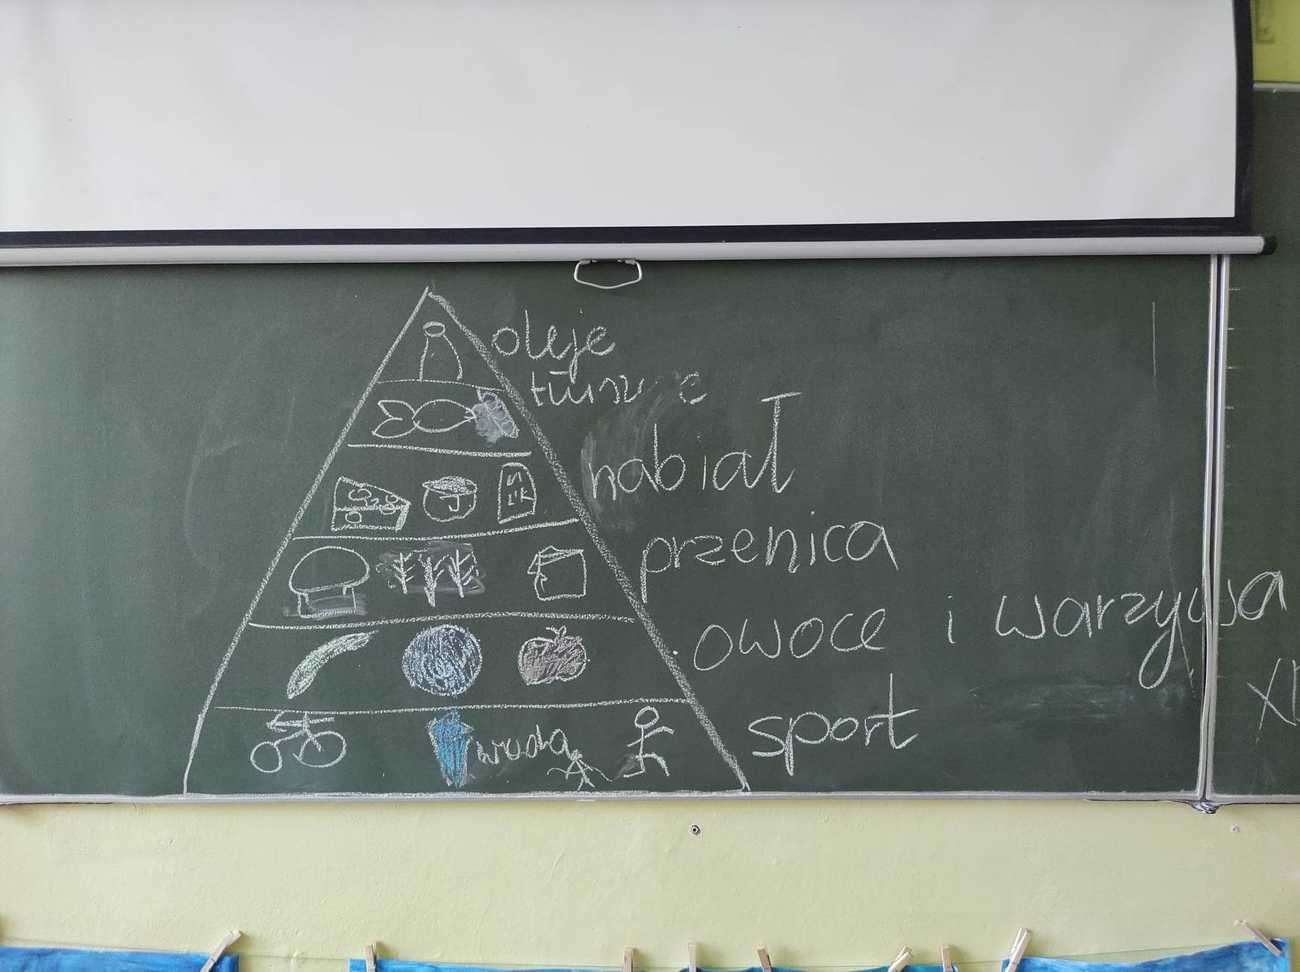 oleje
nabiał
przenica
owoce i warzywa
sport
woda